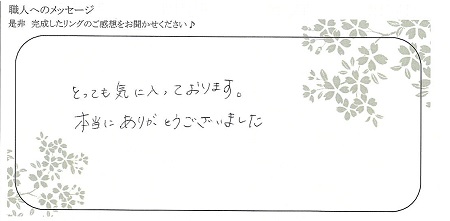 職人へのメッセージ
是非 完成したリングのご感想をお聞かせください♪
とっても気に入っております。
本当にありがとうございました